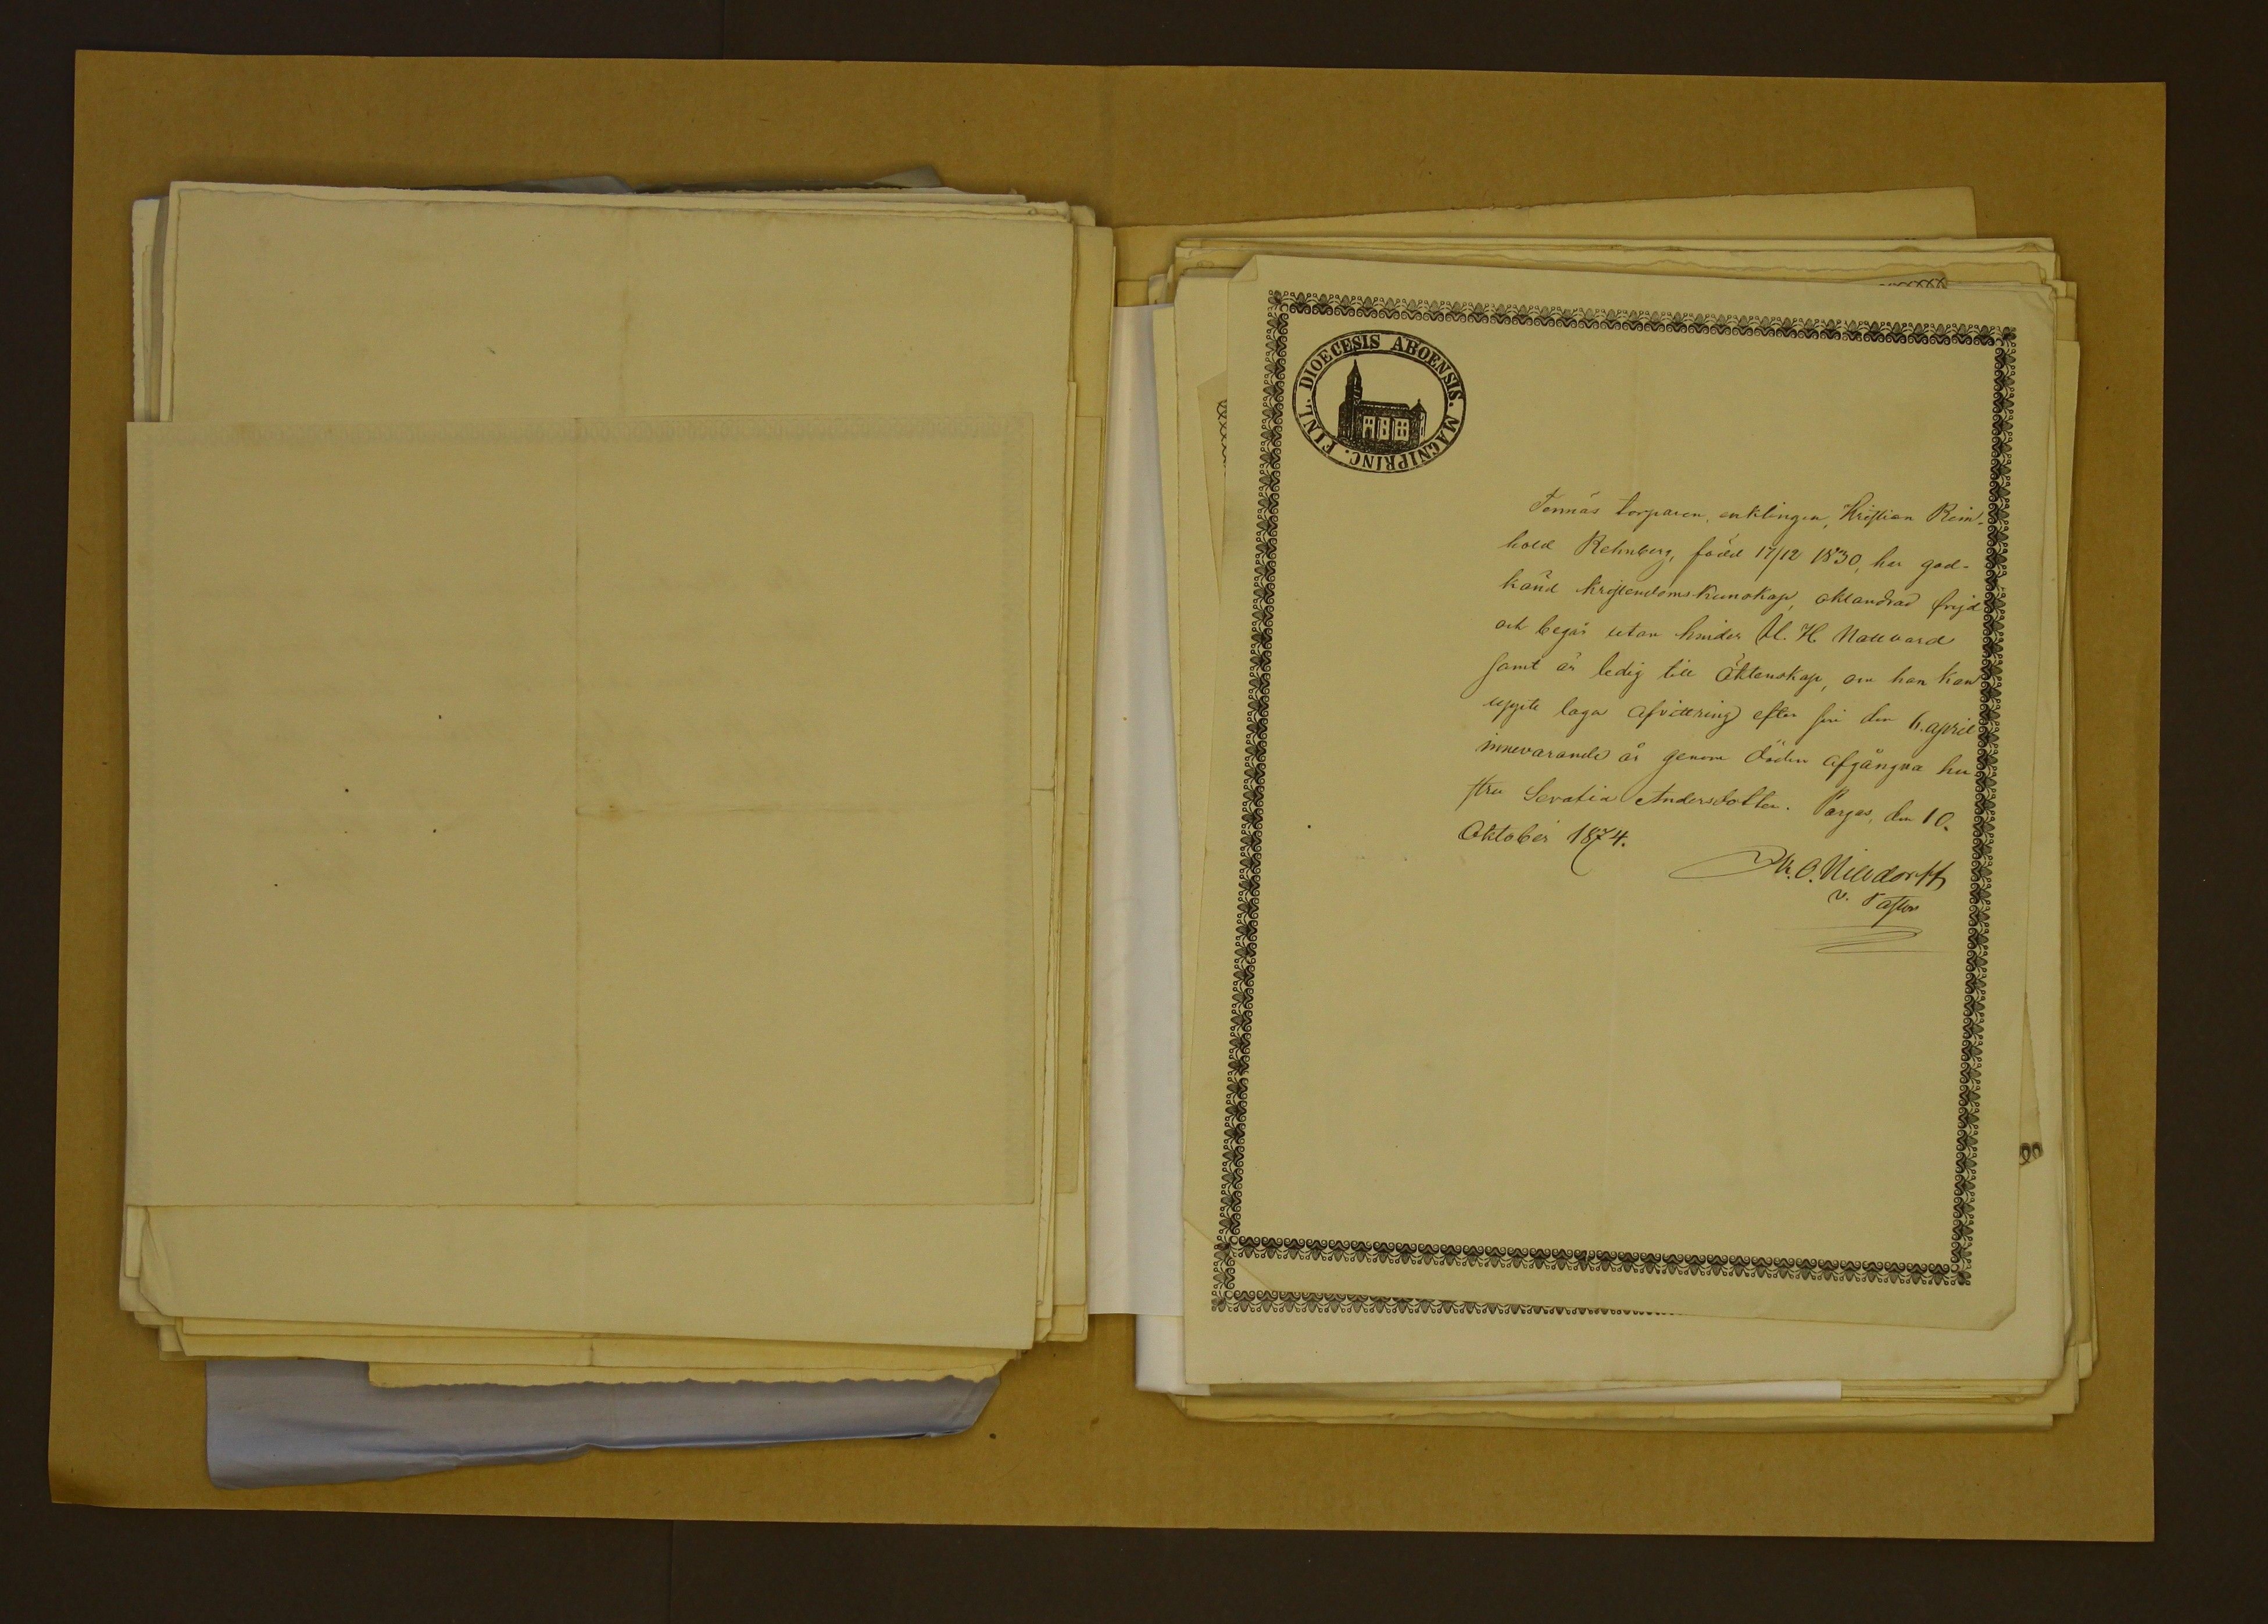 DIOECESIS ABOENSIS. MAGNIPRINC. FINL.
torparen, enklingen, Kristian Rein-
hold Rehnberg, född 17/12 1830, har god-
känd kristendomskunskap, oklandrad frejd
och begår utan hinder H. H. Nattvard
samt är ledig till äktenskap, om han kan
uppte laga afvittring efter sin den 6. april
innevarande år genom döden afgångna hu-
stru Serafia Andersdotter. Pargas, den 10.
Oktober 1874.
v. Pastor